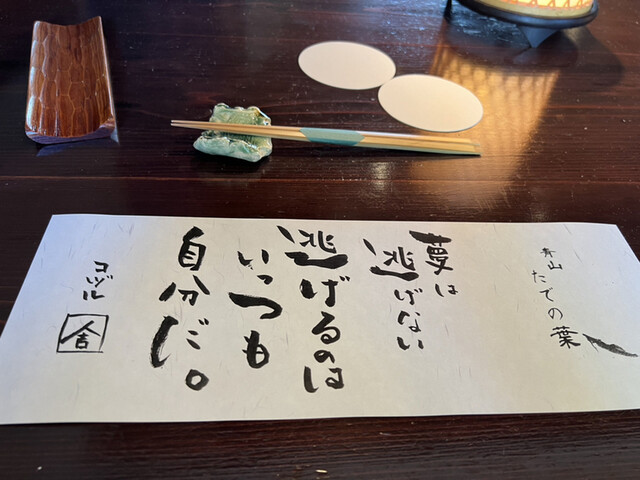 青山
たでの葉
夢は
逃げない
逃げるのは
いっつも
自分だ。
コヅル
舎